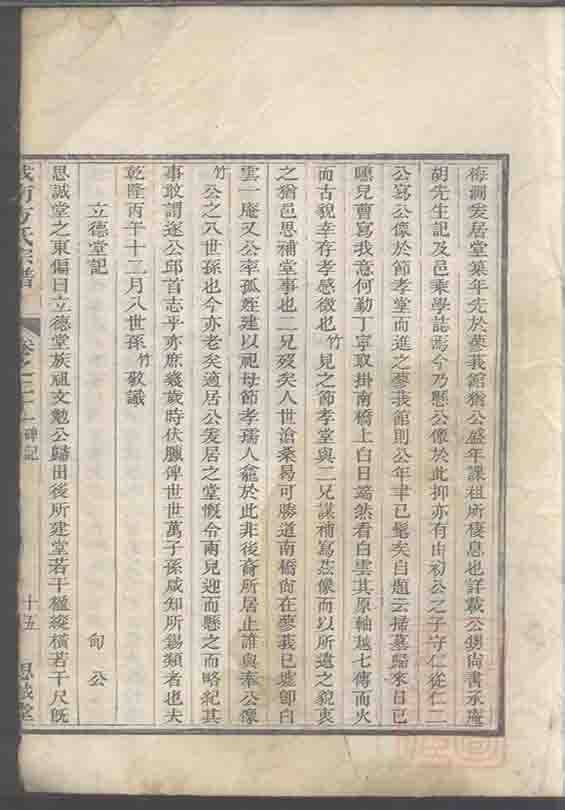 梅澗爰居堂築年先於蓼莪館猶公盛年課祖所棲息也詳載公甥尚書承庵
胡先生記及邑乘學誌焉今乃懸公像於此抑亦有由初公之子守仁從仁二
公寫公像於節孝堂而進之蓼莪館則公年聿已髦矣自題云掃墓歸來日已
曛兒曹寫我意何勤丁寧取掛南橋上白日端然看白雲其原軸越七傳而火
而古貌幸存孝感徵也竹見之節孝堂與二兄謀補寫茲像而以所遺之貌衷
之猶邑思補堂事也二兄歿矣人世滄桑易可勝道南橋尚在蓼莪已墟卽白
雲一庵又公率孤姪建以祀母節孝孺人龕於此非後裔所居止誰與奉公像
竹公之八世孫也今亦老矣適居公爰居之堂慨令兩兒迎而懸之而略紀其
事敢謂遂公邱首志乎亦庶幾歲時伏臘俾世世萬子孫咸知所錫類者也夫
乾隆丙午十二月八世孫竹敬識
立德堂記 甸公
思誠堂之東偏曰立德堂族祖文勉公歸田後所建堂若干楹縱橫若干尺旣
方氏宗譜 卷之三十一 碑記 十五 思誠堂